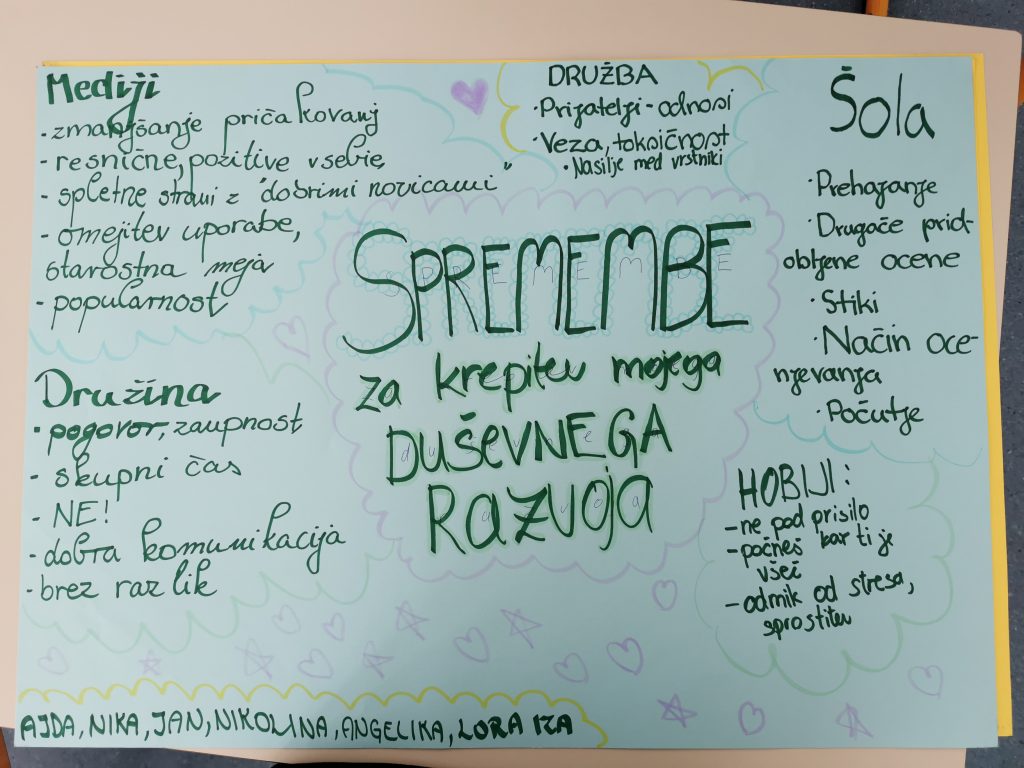 Mediji
- zmanjšanje pričakovanj
- resnične, pozitive vsebie,
- spletne strani z "dobrimi novicami"
- omejitev uporabe,
starostna meja
- popularnost
DRUŽBA
· Prijatelji - odnosi
· Veza, toksičnost
· Nasilje med vrstniki
Šola
· Prehajanje
· Drugače prid-
obljene ocene
· Stiki
· Način oce-
njevanja
· Počutje
SPREMEMBE
za krepitev mojega
DUŠEVNEGA
RAZVOJA
Družina
· pogovor, zaupnost
- skupni čas
- NE!
- dobra komunikacija
- brez razlik
HOBIJI:
- ne pod prisilo
- počneš kar ti je
všeč
- odmik od stresa,
sprostitev
AJDA, NIKA, JAN, NIKOLINA, ANGELIKA, LORA IZA